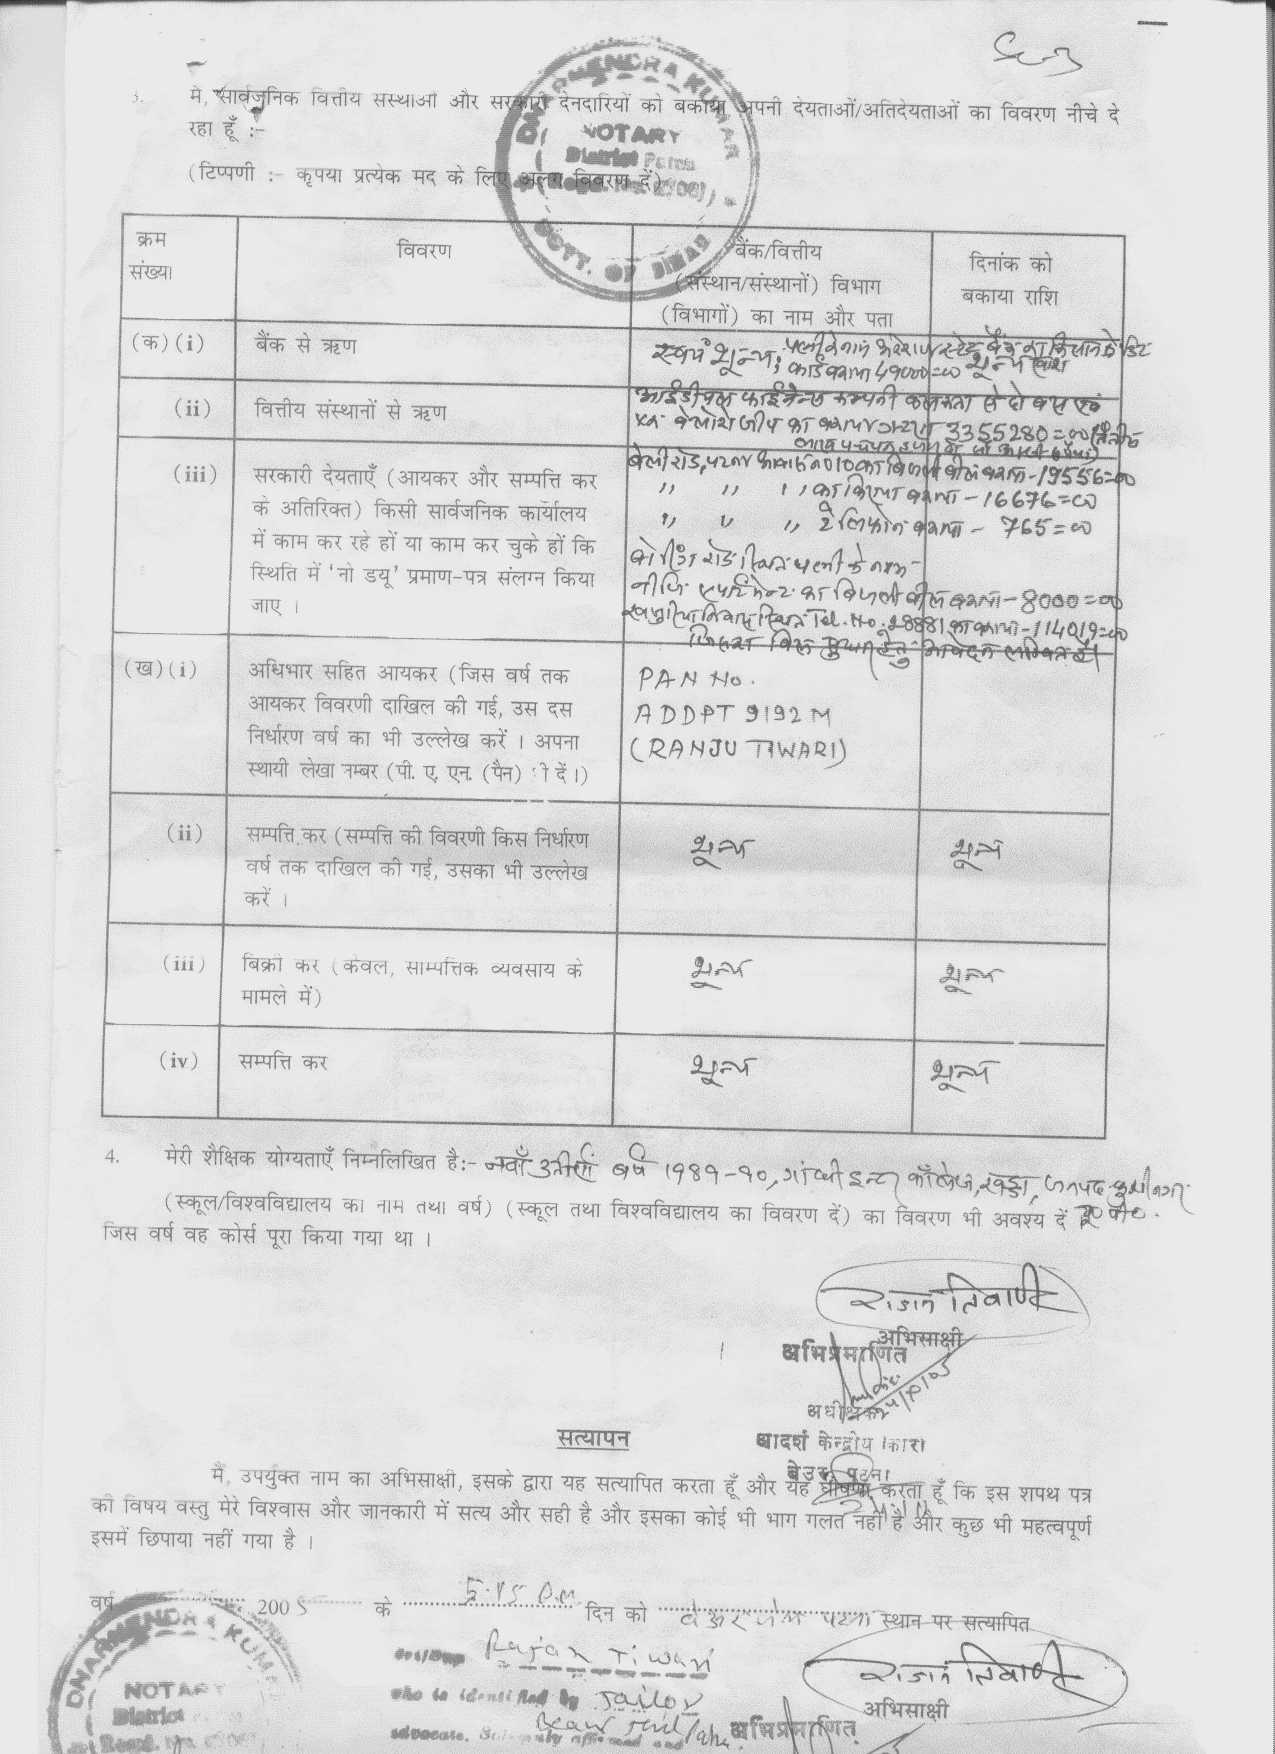 3. मै, सार्वजनिक वित्तीय संस्थाओं और सरकारी देनदारियों को बकाया अपनी देयताओं/अतिदेयताओं का विवरण नीचे दे
रहा हूँ :-
(टिप्पणी :- कृपया प्रत्येक मद के लिए अलग विवरण दें)
DHARMENDRA KUMAR
NOTARY
District Patna
GOTT. OF BIHAR
क्रम संख्या
विवरण
बैंक/वित्तीय
(संस्थान/संस्थानों) विभाग
(विभागों) का नाम और पता
दिनांक को
बकाया राशि
(क) (i) बैंक से ऋण
स्वयं शून्य, पत्नी के नाम स्टेट बैंक का किसान क्रेडिट
कार्ड बकाया 49000=00 शून्य
(ii) वित्तीय संस्थानों से ऋण
फाईनेन्स कम्पनी कलकत्ता से दो बस एवं
एक बोलेरो जीप का बकाया 3355280=00
(iii) सरकारी देयताएँ (आयकर और सम्पत्ति कर
के अतिरिक्त) किसी सार्वजनिक कार्यालय
में काम कर रहे हों या काम कर चुके हों कि
स्थिति में 'नो डयू' प्रमाण-पत्र संलग्न किया
जाए ।
बेली रोड, पटना आवास न० 10 का बिजली बील बकाया - 19556=00
,, ,, ,, का किराया बकाया - 16676=00
,, ,, ,, टेलिफोन बकाया - 765=00
बोरिंग रोड स्थित पत्नी के नाम
एपार्टमेन्ट का बिजली बील बकाया - 8000=00
निवास स्थित Tel. No. 28881 का बकाया - 114019=00
बिल सुधार हेतु आवेदन लम्बित है।
(ख) (i) अधिभार सहित आयकर (जिस वर्ष तक
आयकर विवरणी दाखिल की गई, उस दस
निर्धारण वर्ष का भी उल्लेख करें । अपना
स्थायी लेखा नम्बर (पी. ए. एन. (पैन) दें ।)
PAN No.
ADDPT 9192 M
(RANJU TIWARI)
(ii) सम्पत्ति कर (सम्पत्ति की विवरणी किस निर्धारण
वर्ष तक दाखिल की गई, उसका भी उल्लेख
करें ।
शून्य शून्य
(iii) बिक्री कर (केवल, साम्पत्तिक व्यवसाय के
मामले में)
शून्य शून्य
(iv) सम्पत्ति कर शून्य शून्य
4. मेरी शैक्षिक योग्यताएँ निम्नलिखित है:- नवाँ उत्तीर्ण वर्ष १९८९-९०, गांधी इन्टर कॉलेज, खड्डा, जनपद कुशीनगर
(स्कूल/विश्वविद्यालय का नाम तथा वर्ष) (स्कूल तथा विश्वविद्यालय का विवरण दें) का विवरण भी अवश्य दें यू० पी०.
जिस वर्ष वह कोर्स पूरा किया गया था ।
राजन तिवारी
अभिसाक्षी
अभिप्रमाणित
अधीक्षक
आदर्श केन्द्रीय कारा
बेउर, पटना
सत्यापन
मैं, उपर्युक्त नाम का अभिसाक्षी, इसके द्वारा यह सत्यापित करता हूँ और यह घोषणा करता हूँ कि इस शपथ पत्र
की विषय वस्तु मेरे विश्वास और जानकारी में सत्य और सही है और इसका कोई भी भाग गलत नहीं है और कुछ भी महत्वपूर्ण
इसमें छिपाया नहीं गया है ।
वर्ष 2005 के 5.15 P.M दिन को बेउर जेल पटना स्थान पर सत्यापित
Rajan Tiwari
who is identified by Jailor
Beaur Jail
advocate. Solemnly affirmed and
राजन तिवारी
अभिसाक्षी
अभिप्रमाणित
DHARMENDRA KUMAR
NOTARY
District
Regd. No.